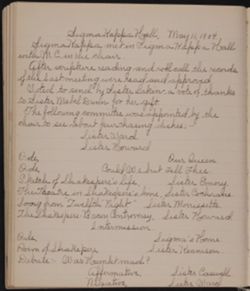 Sigma Kappa Hall, May 11, 1904.
Sigma Kappa met in Sigma Kappa Hall
with M.C. in the chair.
After scripture reading and roll call the records
of the last meeting were read and approved.
Voted to send by Sister Eakin a vote of thanks
to Sister Mabel for her gift.
The following committee was appointed by the
chair to see about purchasing dishes.
Sister Ward
Sister Howard
Ode, Our Queen
Could We but
Sketch of Shakespere's Life Sister Emory
The Theatre in Shakespere's time, Sister Cochrane
Song from "Twelfth Night" Sister Morissette
The Shakspere Bacon Controversy, Sister Howard
Intermission
Ode, Sigma's Home
Heroes of Shakspere Sister Kennison
Debate - Was Hamlet mad?
Affirmative Sister Caswell
Negative Sister Ward